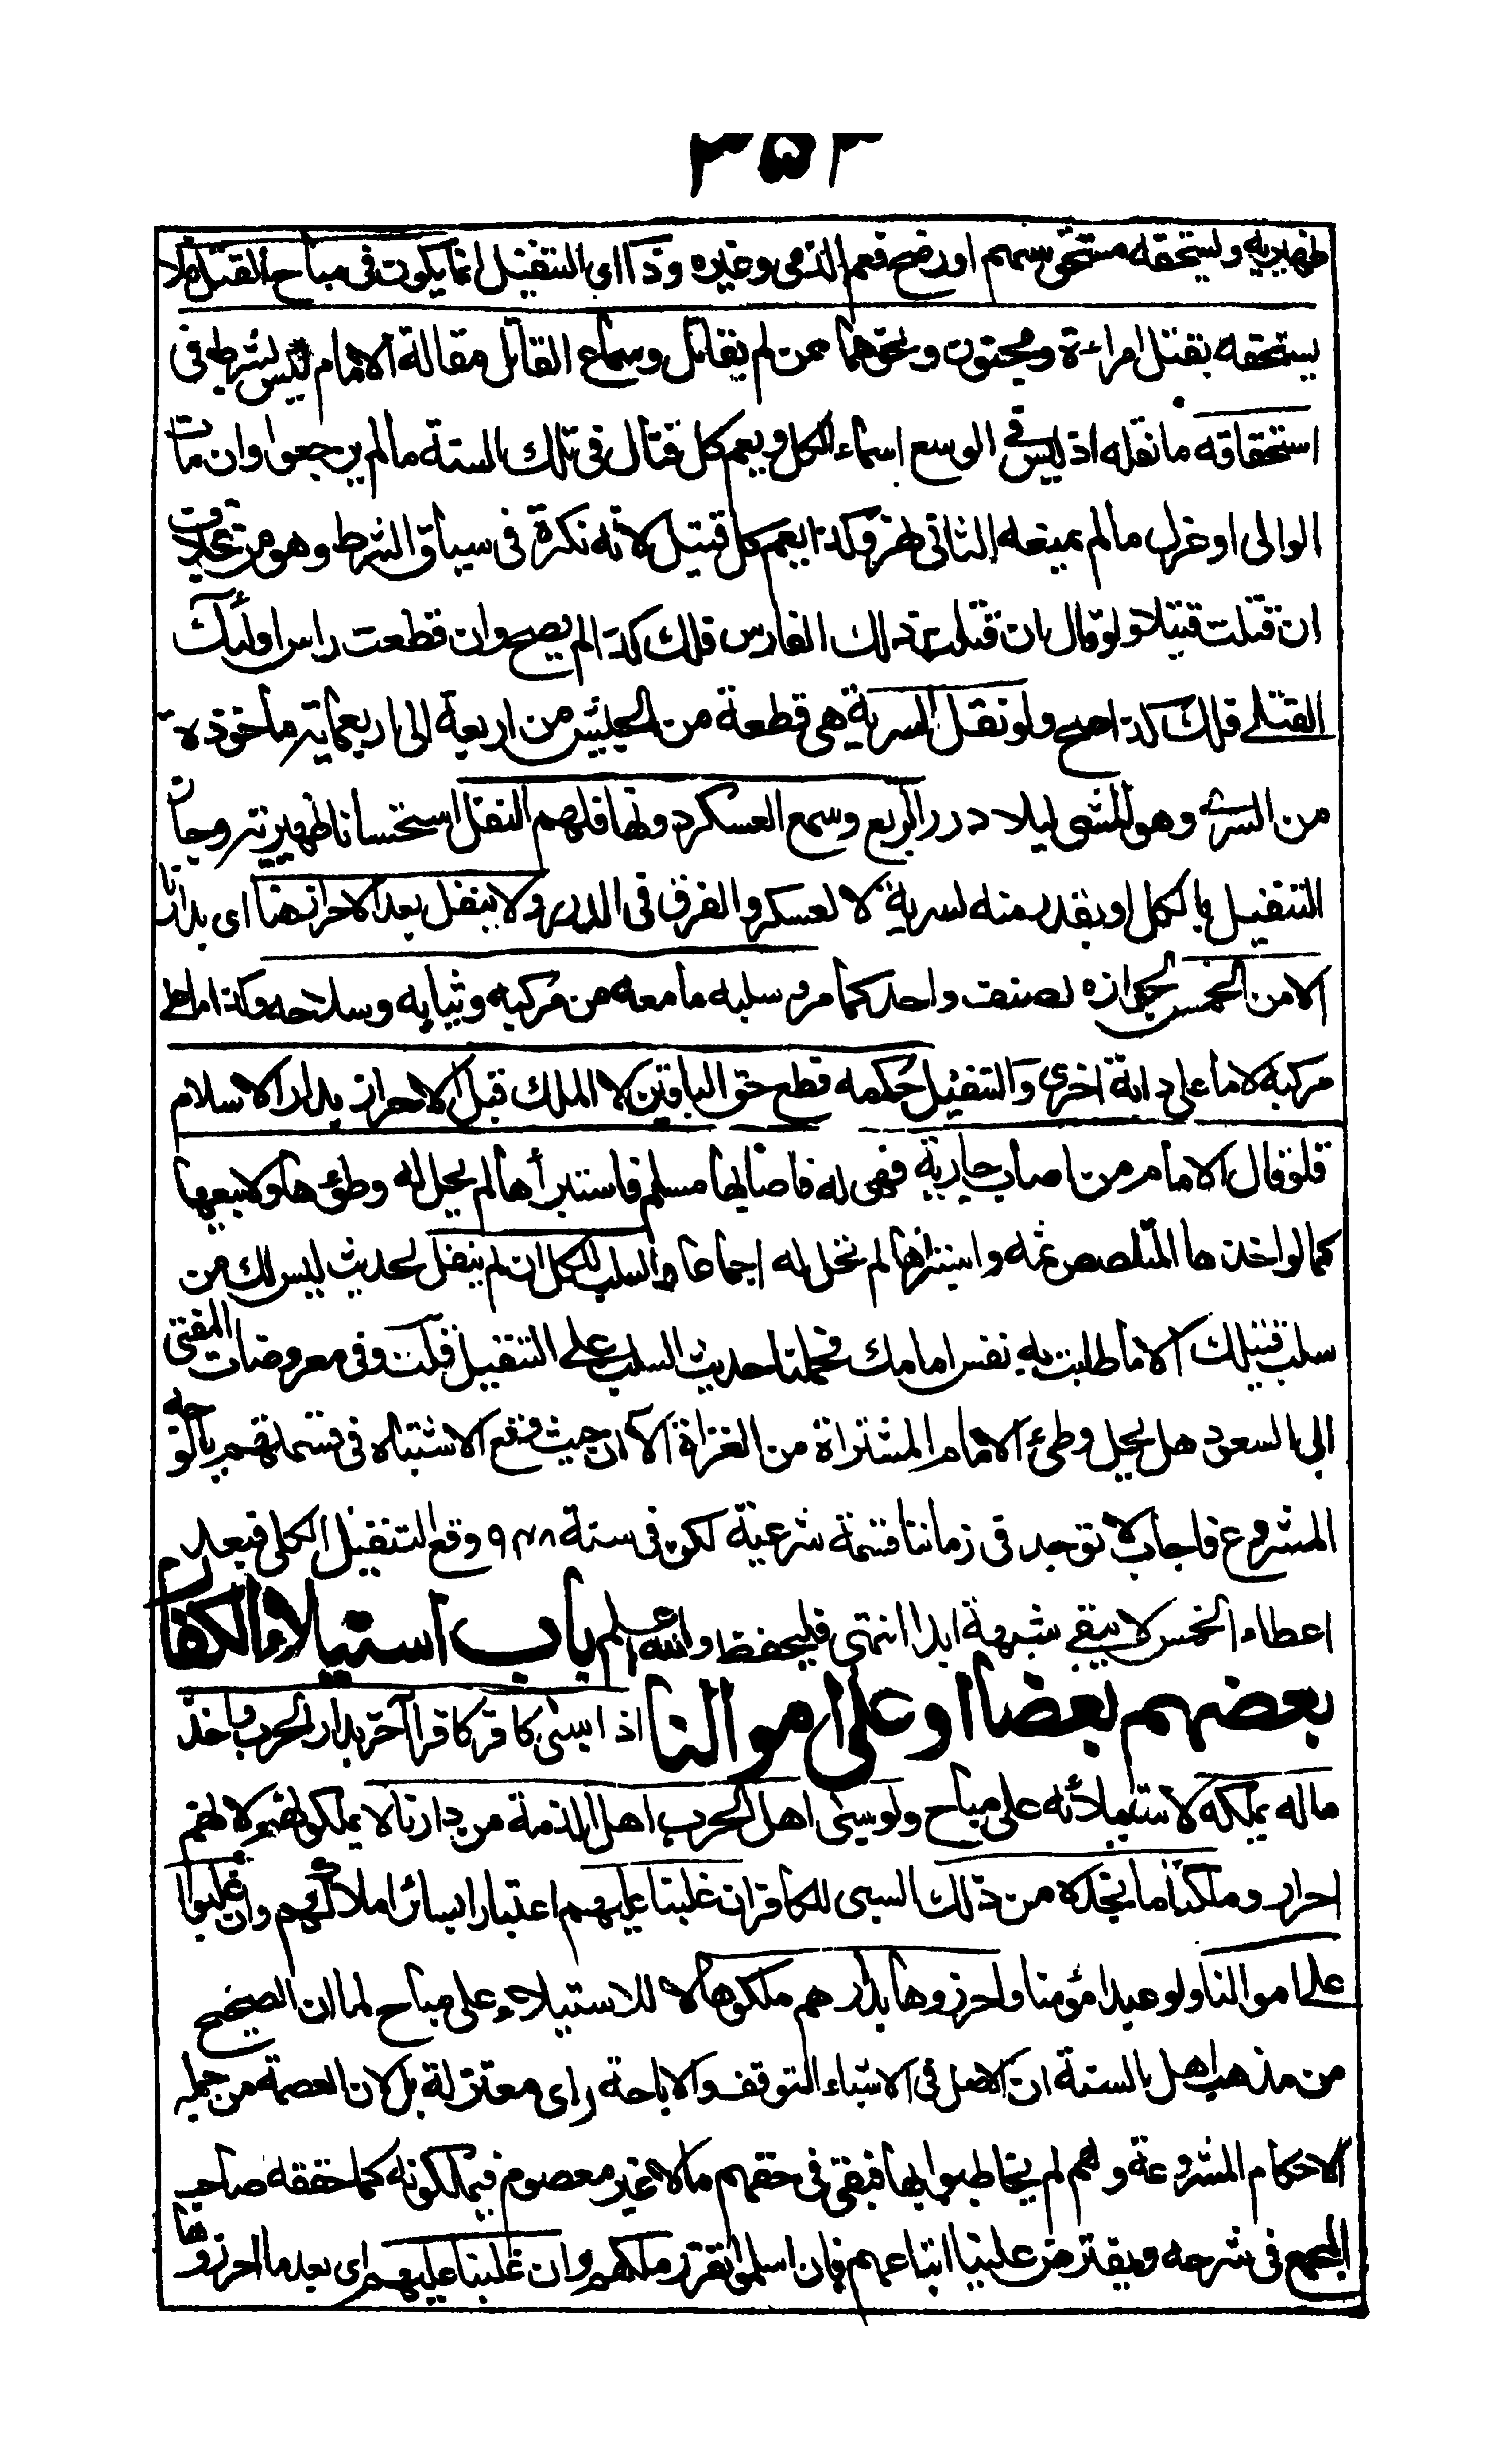 ٣٥٢
ظهيرية ويستحقه مستحق سهم او رضخ فعم الذمي وغيره وذا اى التنفيل انما يكون فى مباح القتل فلا
يستحقه بقتل امراءة ومجنون ونحوهما ممن لم يقاتل وسماع القاتل مقالة الامام ليس بشرط فى
استحقاقه ما نفله اذ ليس فى الوسع اسماء الكل ويعم كل قتال فى تلك السنة مالم يرجعوا وان مات
الوالى او عزل مالم يمنعه الثانى نهر وكذا يعم كل قتيل لانه نكرة فى سياق الشرط وهو من بخلاف
ان قتلت قتيلا ولو قال ان قتلت ذلك الفارس فلك كذا لم يصح وان قطعت راس اولئك
القتلى فلك كذا صح ولو نفل السرية هى قطعة من الجيش من اربعة الى اربعماية ماخوذة
من السرى وهو المشى ليلا درر الربع وسمع العسكر دونها فلهم النفل استحسانا ظهيرية وجاز
التنفيل بالكل او بقدر منه لسرية لا لعسكر والفرق فى الدرر ولا ينفل بعد الاحراز هنا اى بدارنا
الا من الخمس لجوازه لصنف واحد كما مر وسلبه ما معه من مركبه وثيابه وسلاحه وكذا ما على
مركبه لا ما على دابة اخرى والتنفيل حكمه قطع حق الباقين لا الملك قبل الاحراز بدار الاسلام
فلو قال الامام من اصاب جارية فهى له فاصابها مسلم فاستبرأها لم يحل له وطؤها ولا بيعها
كما لو اخذها المتلصص ثمه واستبرأها لم تحل له اجماعا والسلب للكل ان لم ينفل لحديث ليس لك من
سلب قتيلك الا ما طابت به نفس امامك فحملنا حديث السلب على التنفيل قلت وفى معروضات المفتى
ابى السعود هل يحل وطئ الاماء المشتراة من الغزاة الآن حيث وقع الاشتباه فى قسمتهم بالوجه
المشروع فاجاب لا توجد فى زماننا قسمة شرعية لكن فى سنة ٩٤٨ وقع التنفيل الكلى فبعد
اعطاء الخمس لا يبقى شبهة ابدا انتهى فليحفظ والله اعلم باب استيلاء الكفار
بعضهم بعضا او على اموالنا اذا سبى كافر كافرا آخر بدار الحرب واخذ
ماله يملكه لاستيلائه على مباح ولو سبى اهل الحرب اهل الذمة من دارنا لا يملكونهم لانهم
احرار وملكنا ما نجده من ذلك السبى للكافر ان غلبنا عليهم اعتبارا بسائر املاكهم وان غلبوا
على اموالنا ولو عبدا مؤمنا واحرزوها بدارهم ملكوها لا للاستيلاء على مباح لما ان الصحيح
من مذهب اهل السنة ان الاصل فى الاشياء التوقف والاباحة راى معتزلة بل لان العصمة من جملة
الاحكام المشروعة وهم لم يخاطبوا بها فبقى فى حقهم مالا غير معصوم فيملكونه كما حققه صاحب
المجمع فى شرحه ويفترض علينا اتباعهم فان اسلموا تقرر ملكهم وان غلبنا عليهم اى بعد ما احرزوها